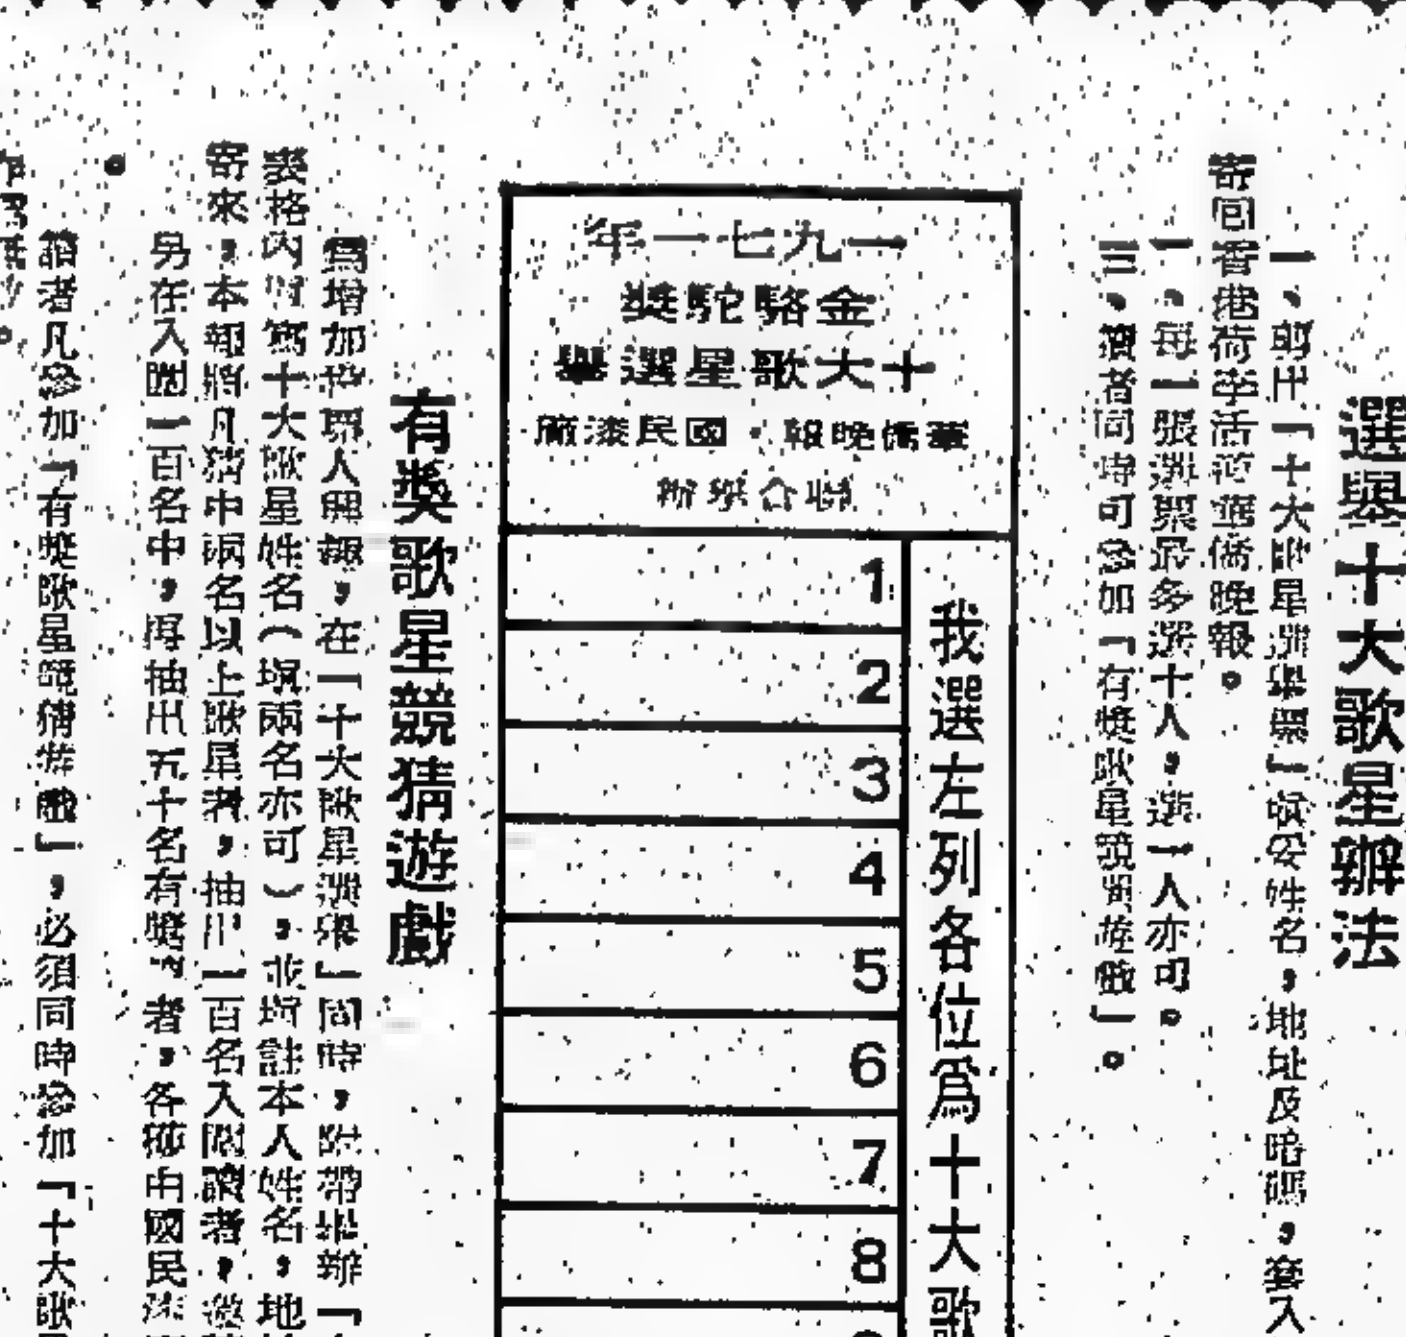 選舉十大歌星辦法
一、剪出「十大歌星選舉票」填妥姓名，地址及暗碼，套入
寄回香港荷李活道華僑晚報。
一、每一張選票最多選十人，選一人亦可。
三、讀者同時可參加「有獎歌星競猜遊戲」。
一九七一年
金駱駝獎
十大歌星選舉
華僑晚報・國民漆廠
聯合舉辦
我選左列各位爲十大歌
1
2
3
4
5
6
7
8
有獎歌星競猜遊戲
爲增加投票人興趣，在「十大歌星選舉」同時，附帶舉辦「
表格內填寫十大歌星姓名（填兩名亦可），並附註本人姓名，地
寄來，本報將凡猜中兩名以上歌星者，抽出一百名入圍讀者，邀
另在入圍一百名中，再抽出五十名有獎者，各獲由國民漆
。
讀者凡參加「有獎歌星競猜遊戲」，必須同時參加「十大歌